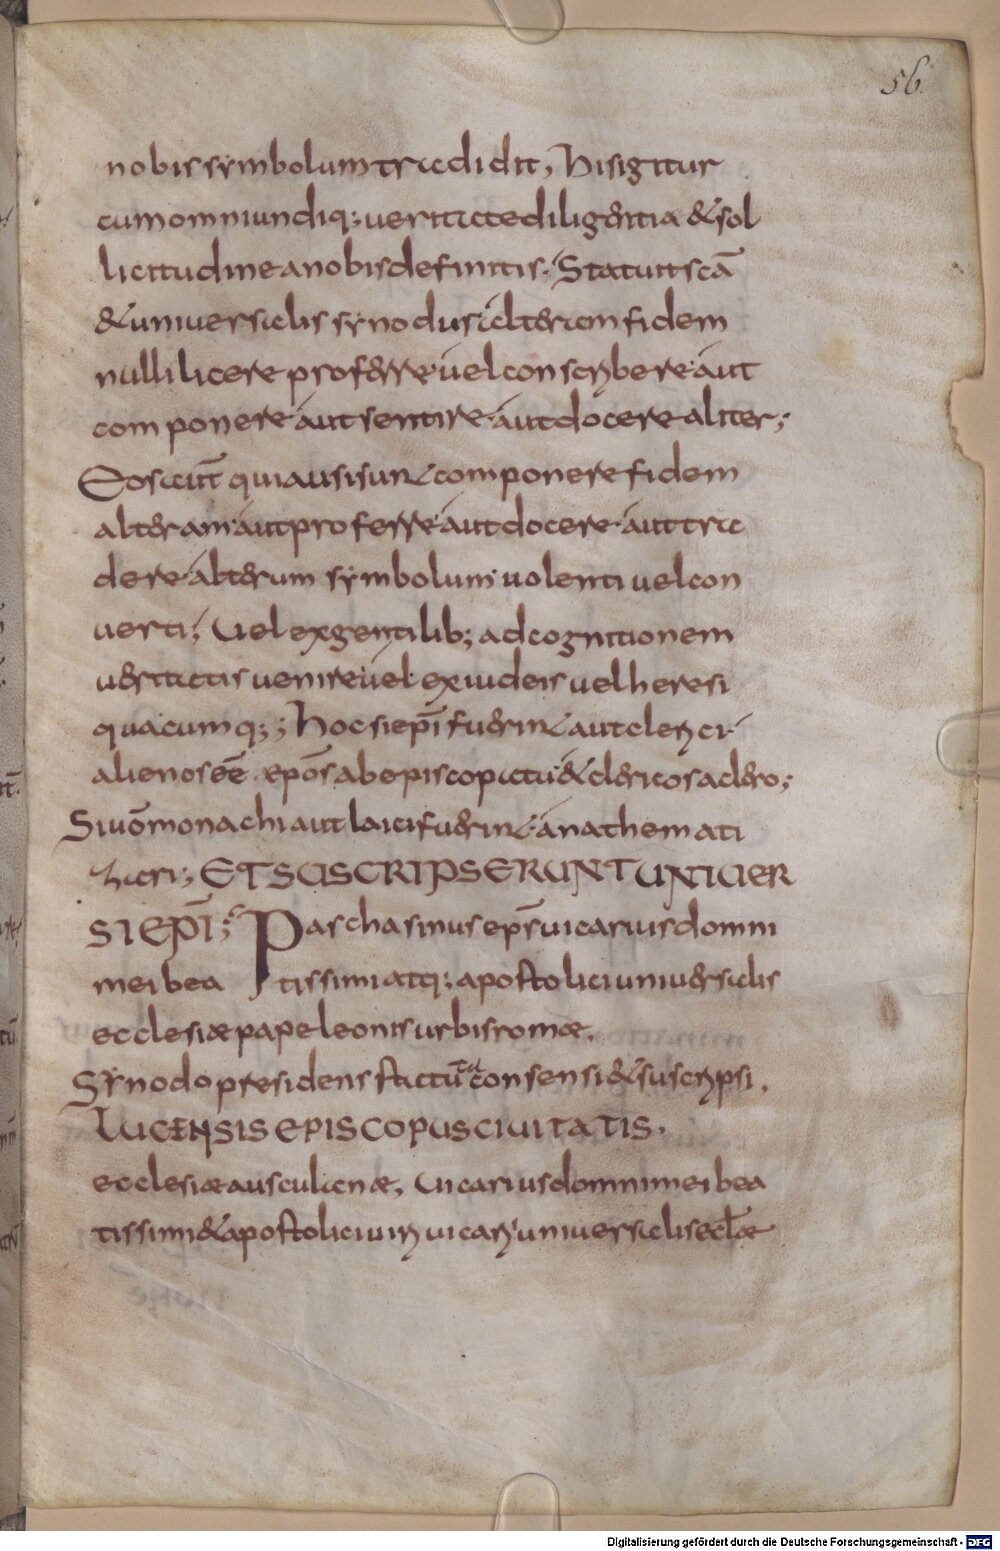 56.
nobis symbolum tradidit, His igitur
cum omni undiq; ueritate diligentia & sol
licitudine a nobis definitis. Statuit scā
& uniuersalis synodus alteram fidem
nulli licere proferre uel conscribere aut
componere aut sentire aut docere aliter;
Eos aut̄ qui ausi sunt componere fidem
alteram aut proferre aut docere aut tra
dere alterum symbolum uolenti uel con
uerti; Uel ex gentilib; ad cognitionem
ueritatis uenire uel ex iudeis uel heresi
quacumq;; Hoc si epī fuerint aut clerici
alienos eē epōs ab episcopatu & clericos a clero;
Si uō monachi aut laici fuerint anathemati
zari; ET SUSCRIPSERUNT UNIUER
SI EPĪ; Paschasinus eps̄ uicarius domni
mei bea tissimi atq; apostolici uniuersalis
ecclesiæ pape leonis urbis romæ,
Synodo presidens statu con sensi & suscripsi.
LUCENSIS EPISCOPUS CIUITATIS.
ecclesiæ ausculanæ, Uicarius domni mei bea
tissimi & apostolici uiri uicarii uniuersalis eclæ
Digitalisierung gefördert durch die Deutsche Forschungsgemeinschaft - DFG